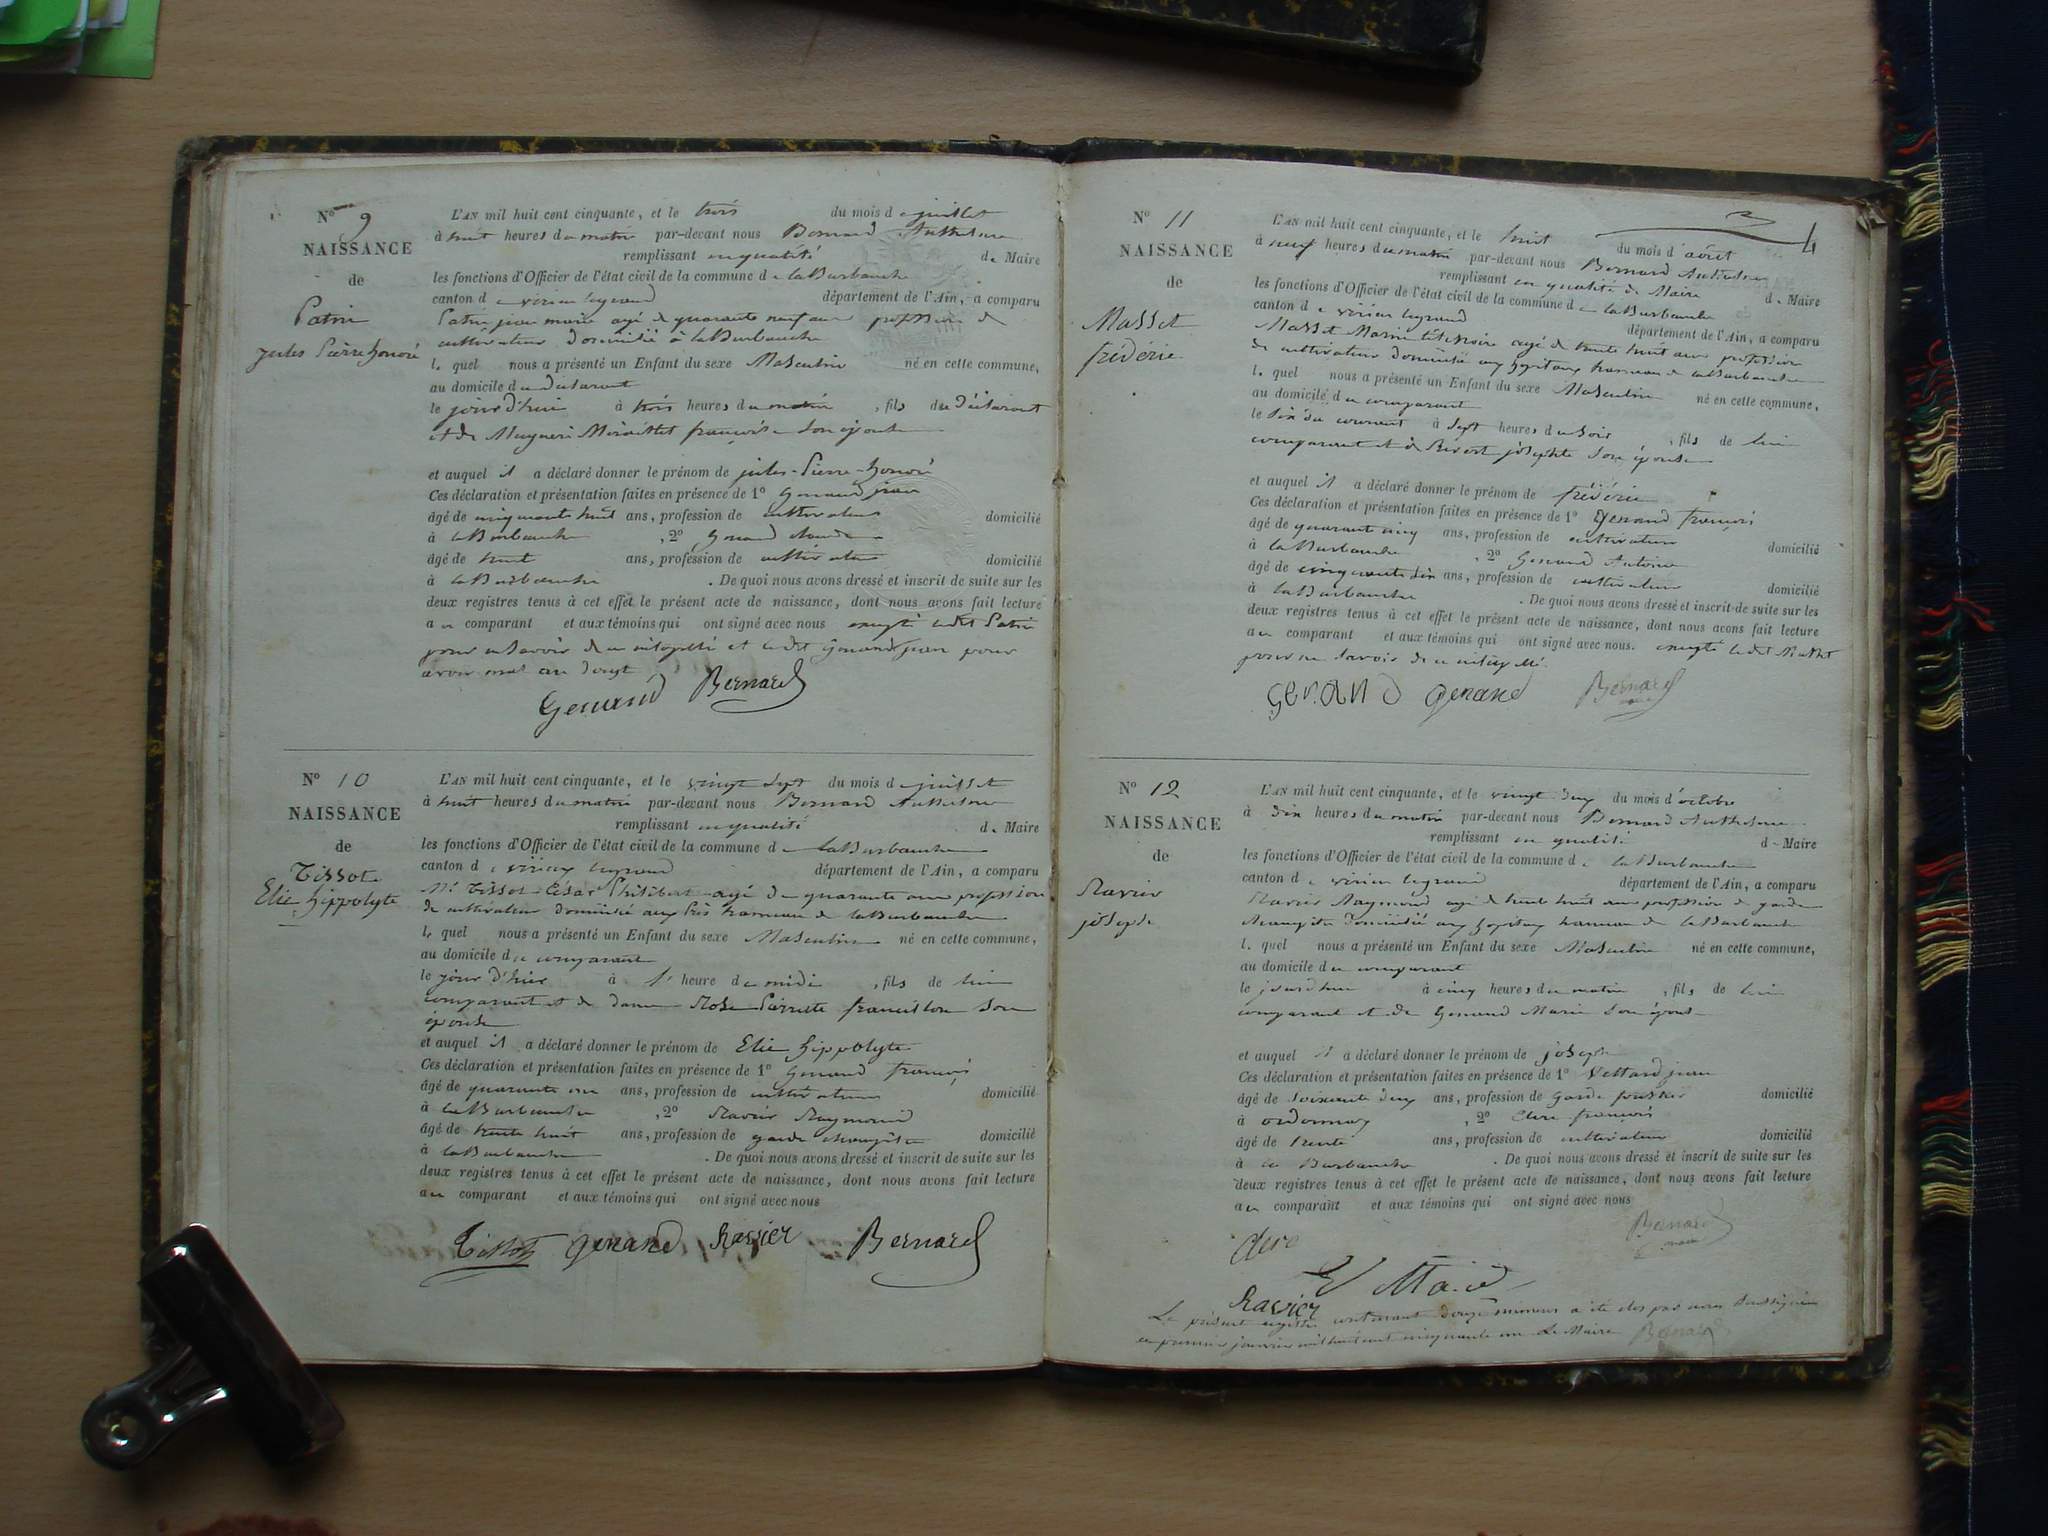 N° 9
NAISSANCE
de
Patrin
jules Pierre honoré
L'AN mil huit cent cinquante, et le trois du mois de juillet
à huit heures du matin par-devant nous Bernard Anthelme
remplissant en qualité de Maire
les fonctions d'Officier de l'état civil de la commune de la Burbanche
canton de virieu legrand département de l'Ain, a comparu
Patrin jean marie agé de quarante neuf ans profession de
cultivateur domicilié à la Burbanche
lequel nous a présenté un Enfant du sexe Masculin né en cette commune,
au domicile du déclarant
le jour d'hui à trois heures du matin, fils du déclarant
et de françoise son épouse
et auquel il a déclaré donner le prénom de jules-Pierre-honoré
Ces déclaration et présentation faites en présence de 1° Genand jean
âgé de cinquante huit ans, profession de cultivateur domicilié
à la Burbanche, 2° Genand
âgé de ans, profession de cultivateur domicilié
à la Burbanche. De quoi nous avons dressé et inscrit de suite sur les
deux registres tenus à cet effet le présent acte de naissance, dont nous avons fait lecture
au comparant et aux témoins qui ont signé avec nous excepté ledit Patrin
pour ne savoir de ce intepellé et ledit Genand jean pour
avoir mal au doigt
Genand Bernard
N° 10
NAISSANCE
de
Tissot
Elie hippolyte
L'AN mil huit cent cinquante, et le vingt sept du mois de juillet
à huit heures du matin par-devant nous Bernard Anthelme
remplissant en qualité de Maire
les fonctions d'Officier de l'état civil de la commune de la Burbanche
canton de virieu legrand département de l'Ain, a comparu
Mr Tissot César Philibert agé de quarante ans profession
de cultivateur domicilié aux hameau de la Burbanche
lequel nous a présenté un Enfant du sexe Masculin né en cette commune,
au domicile du comparant
le jour d'hier à 1 heure de midi, fils de lui
comparant et de dame Rose Pierrette francillon son
épouse
et auquel il a déclaré donner le prénom de Elie hippolyte
Ces déclaration et présentation faites en présence de 1° Genand françois
âgé de quarante ans, profession de cultivateur domicilié
à la Burbanche, 2° Ravier Raymond
âgé de trente huit ans, profession de garde champêtre domicilié
à la Burbanche. De quoi nous avons dressé et inscrit de suite sur les
deux registres tenus à cet effet le présent acte de naissance, dont nous avons fait lecture
au comparant et aux témoins qui ont signé avec nous
Tissot genand Ravier Bernard
4
N° 11
NAISSANCE
de
Masset
frédéric
L'AN mil huit cent cinquante, et le huit du mois d'août
à neuf heures du matin par-devant nous Bernard Anthelme
remplissant en qualité de Maire de Maire
les fonctions d'Officier de l'état civil de la commune de la Burbanche
canton de virieu legrand département de l'Ain, a comparu
Masset Marin agé de trente huit ans profession
de cultivateur domicilié aux hopitaux hameau de la Burbanche
lequel nous a présenté un Enfant du sexe Masculin né en cette commune,
au domicile du comparant
le six du courant à sept heures du soir, fils de lui
comparant et de josephte son épouse
et auquel il a déclaré donner le prénom de frédéric
Ces déclaration et présentation faites en présence de 1° Genand françois
âgé de quarante cinq ans, profession de cultivateur domicilié
à la Burbanche, 2° Genand Antoine
âgé de cinquante six ans, profession de cultivateur domicilié
à la Burbanche. De quoi nous avons dressé et inscrit de suite sur les
deux registres tenus à cet effet le présent acte de naissance, dont nous avons fait lecture
au comparant et aux témoins qui ont signé avec nous. excepté ledit Masset
pour ne savoir de ce
GENAND genand Bernard
maire
N° 12
NAISSANCE
de
Ravier
joseph
L'AN mil huit cent cinquante, et le vingt deux du mois d'octobre
à dix heures du matin par-devant nous Bernard Anthelme
remplissant en qualité de Maire
les fonctions d'Officier de l'état civil de la commune de la Burbanche
canton de virieu legrand département de l'Ain, a comparu
Ravier Raymond agé de trente huit ans profession de garde
champêtre domicilié aux hopitaux hameau de la Burbanche
lequel nous a présenté un Enfant du sexe Masculin né en cette commune,
au domicile du comparant
le jourd'hui à cinq heures du matin, fils de lui
comparant et de Genand Marie son épouse
et auquel il a déclaré donner le prénom de joseph
Ces déclaration et présentation faites en présence de 1° Vettard jean
âgé de soixante deux ans, profession de garde forestier domicilié
à ordonnaz, 2° Clerc françois
âgé de trente ans, profession de cultivateur domicilié
à la Burbanche. De quoi nous avons dressé et inscrit de suite sur les
deux registres tenus à cet effet le présent acte de naissance, dont nous avons fait lecture
au comparant et aux témoins qui ont signé avec nous
Bernard
maire
Ravier
Le présent registre contenant douze a été clos par nous soussigné
le premier janvier mil huit cent cinquante un Le Maire Bernard